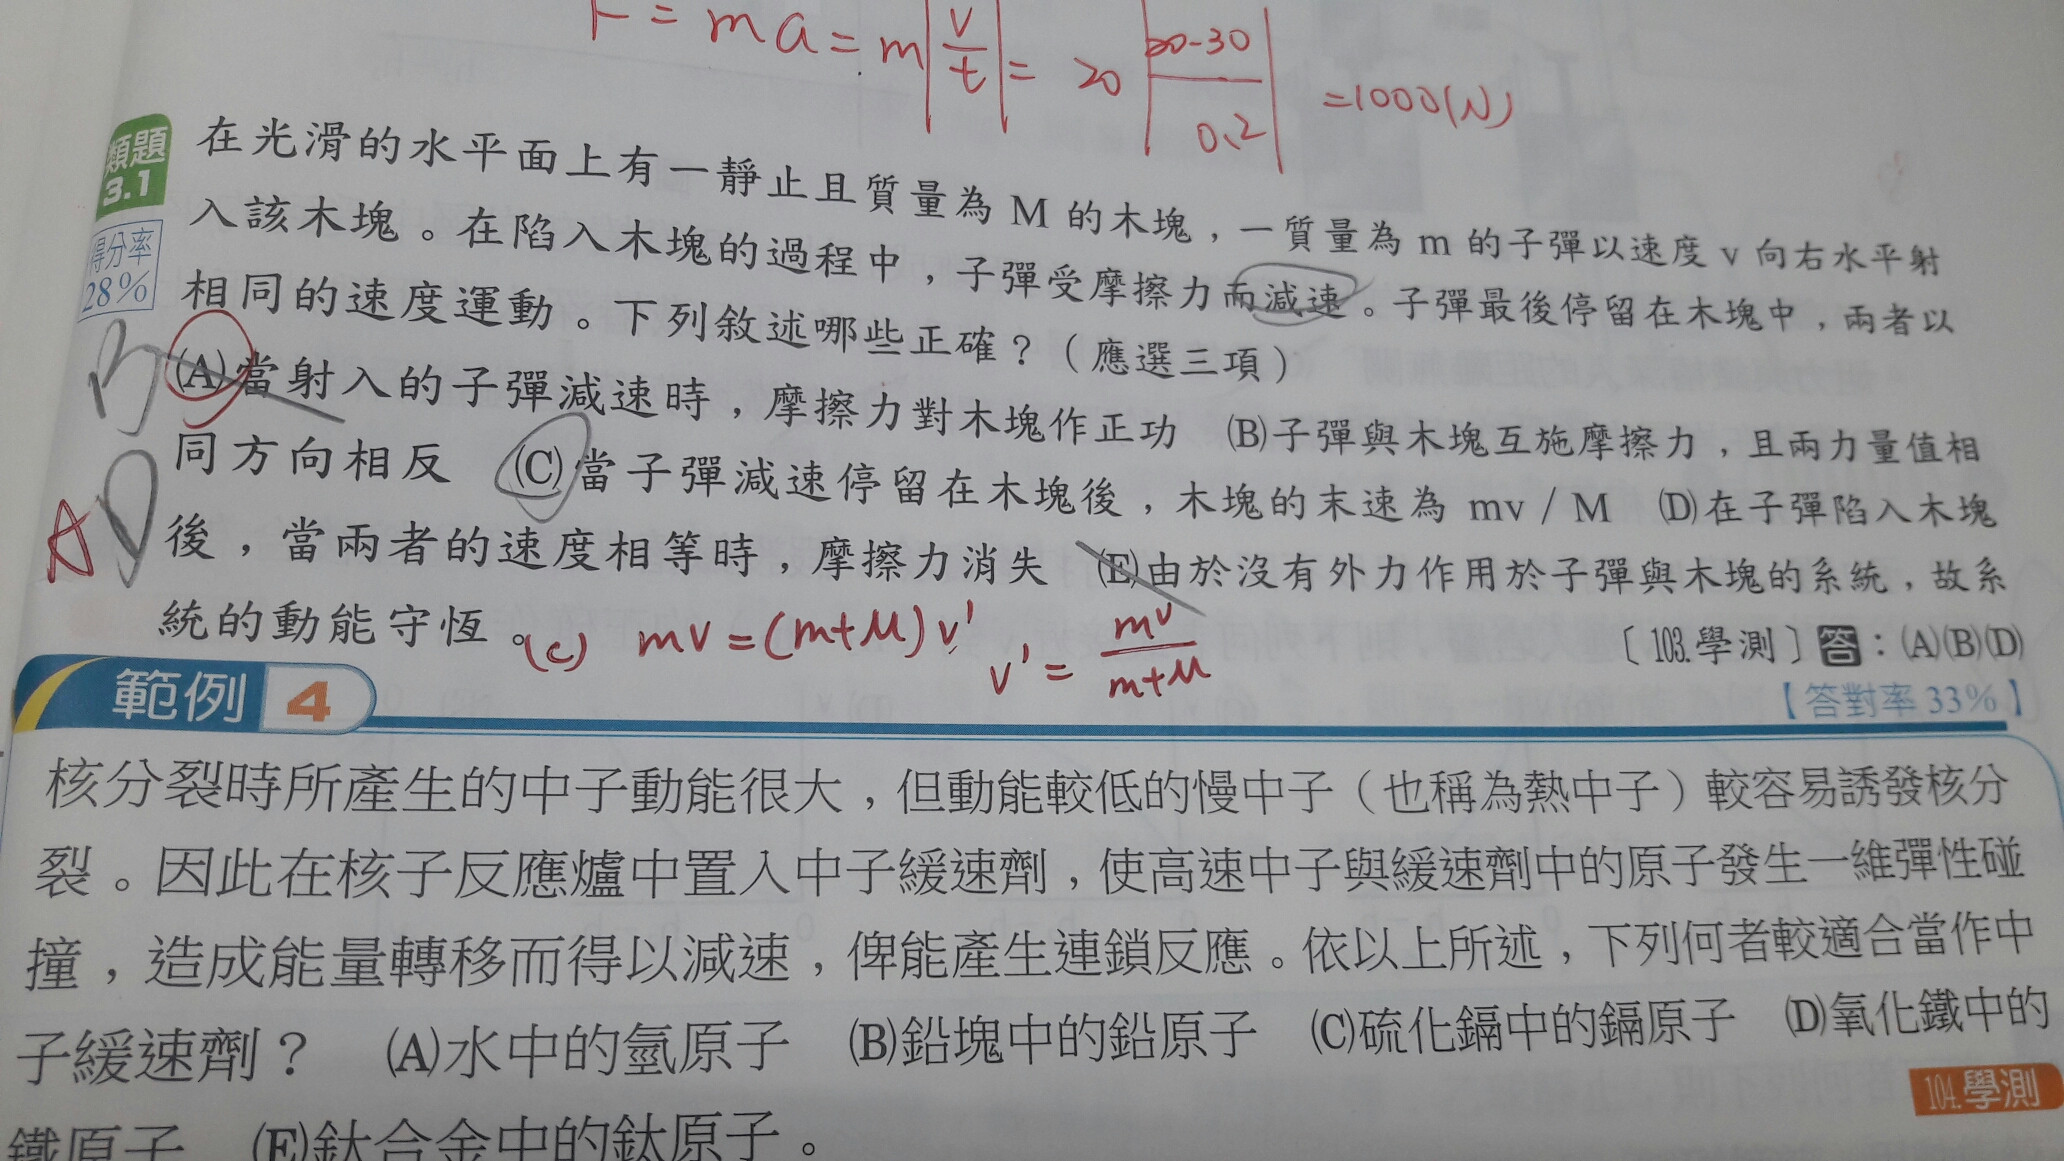 F = ma = m|v/t| = 20 |20-30/0.2| =1000(N)
類題
3.1
得分率
28%
在光滑的水平面上有一靜止且質量為 M 的木塊，一質量為 m 的子彈以速度 v 向右水平射
入該木塊。在陷入木塊的過程中，子彈受摩擦力而減速。子彈最後停留在木塊中，兩者以
相同的速度運動。下列敘述哪些正確？（應選三項）
(A)當射入的子彈減速時，摩擦力對木塊作正功 (B)子彈與木塊互施摩擦力，且兩力量值相
同方向相反 (C)當子彈減速停留在木塊後，木塊的末速為 mv / M (D)在子彈陷入木塊
後，當兩者的速度相等時，摩擦力消失 (E)由於沒有外力作用於子彈與木塊的系統，故系
統的動能守恆。
B
D
A
(c) mv = (m+M) v'
v' = mv/m+M
〔103.學測〕答：(A)(B)(D)
【答對率 33%】
範例 4
核分裂時所產生的中子動能很大，但動能較低的慢中子（也稱為熱中子）較容易誘發核分
裂。因此在核子反應爐中置入中子緩速劑，使高速中子與緩速劑中的原子發生一維彈性碰
撞，造成能量轉移而得以減速，俾能產生連鎖反應。依以上所述，下列何者較適合當作中
子緩速劑？ (A)水中的氫原子 (B)鉛塊中的鉛原子 (C)硫化鎘中的鎘原子 (D)氧化鐵中的
鐵原子 (E)鈦合金中的鈦原子。
104.學測